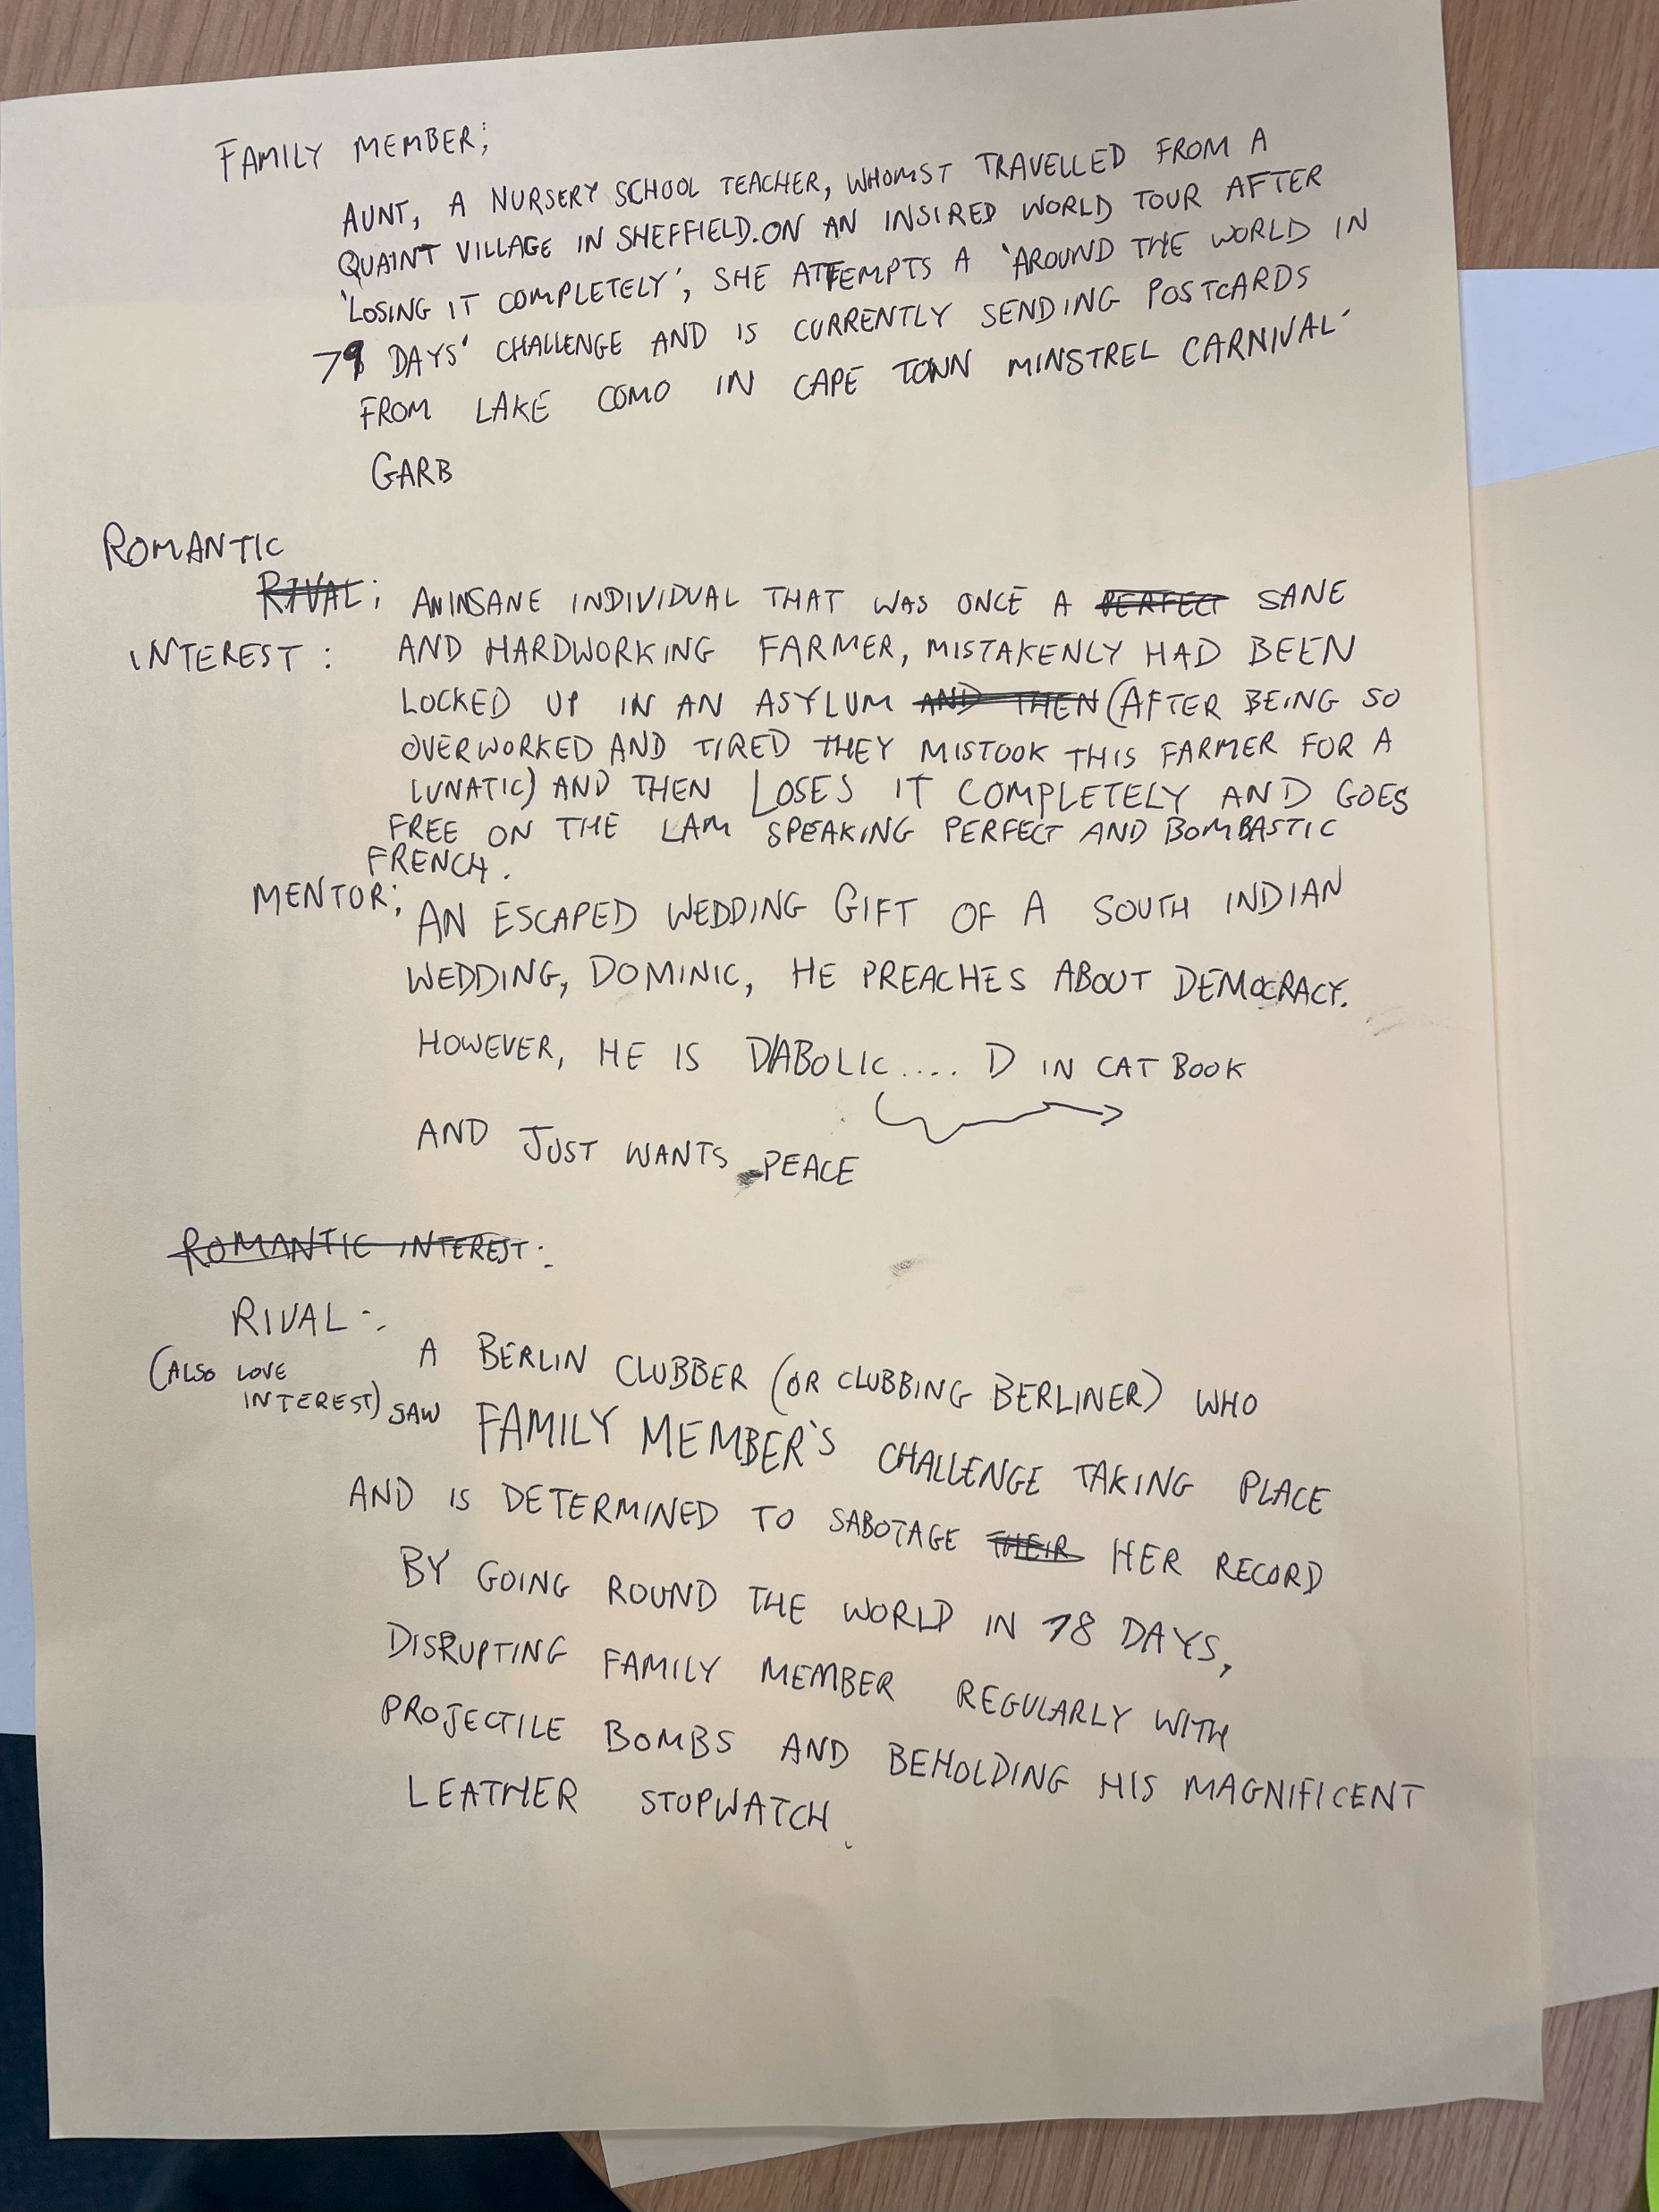 FAMILY MEMBER;
AUNT, A NURSERY SCHOOL TEACHER, WHOMST TRAVELLED FROM A
QUAINT VILLAGE IN SHEFFIELD. ON AN INSIRED WORLD TOUR AFTER
'LOSING IT COMPLETELY', SHE ATTEMPTS A 'AROUND THE WORLD IN
79 DAYS' CHALLENGE AND IS CURRENTLY SENDING POSTCARDS
FROM LAKE COMO IN CAPE TOWN MINSTREL CARNIVAL
GARB
ROMANTIC
RIVAL; AN INSANE INDIVIDUAL THAT WAS ONCE A PERFECT SANE
INTEREST: AND HARDWORKING FARMER, MISTAKENLY HAD BEEN
LOCKED UP IN AN ASYLUM AND THEN (AFTER BEING SO
OVERWORKED AND TIRED THEY MISTOOK THIS FARMER FOR A
LUNATIC) AND THEN LOSES IT COMPLETELY AND GOES
FREE ON THE LAM SPEAKING PERFECT AND BOMBASTIC
FRENCH.
MENTOR; AN ESCAPED WEDDING GIFT OF A SOUTH INDIAN
WEDDING, DOMINIC, HE PREACHES ABOUT DEMOCRACY.
HOWEVER, HE IS DIABOLIC.... D IN CAT BOOK
AND JUST WANTS PEACE
ROMANTIC INTEREST:
RIVAL:
(ALSO LOVE INTEREST) A BERLIN CLUBBER (OR CLUBBING BERLINER) WHO
SAW FAMILY MEMBER'S CHALLENGE TAKING PLACE
AND IS DETERMINED TO SABOTAGE THEIR HER RECORD
BY GOING ROUND THE WORLD IN 78 DAYS,
DISRUPTING FAMILY MEMBER REGULARLY WITH
PROJECTILE BOMBS AND BEHOLDING HIS MAGNIFICENT
LEATHER STOPWATCH.